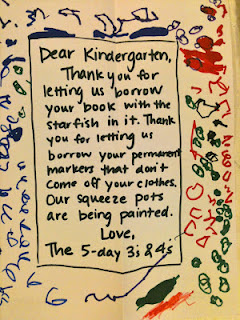 Dear Kindergarten,
Thank you for
letting us borrow
your book with the
starfish in it. Thank
you for letting us
borrow your permanent
markers that don't
come off your clothes.
Our squeeze pots
are being painted.
Love,
The 5-day 3's & 4's